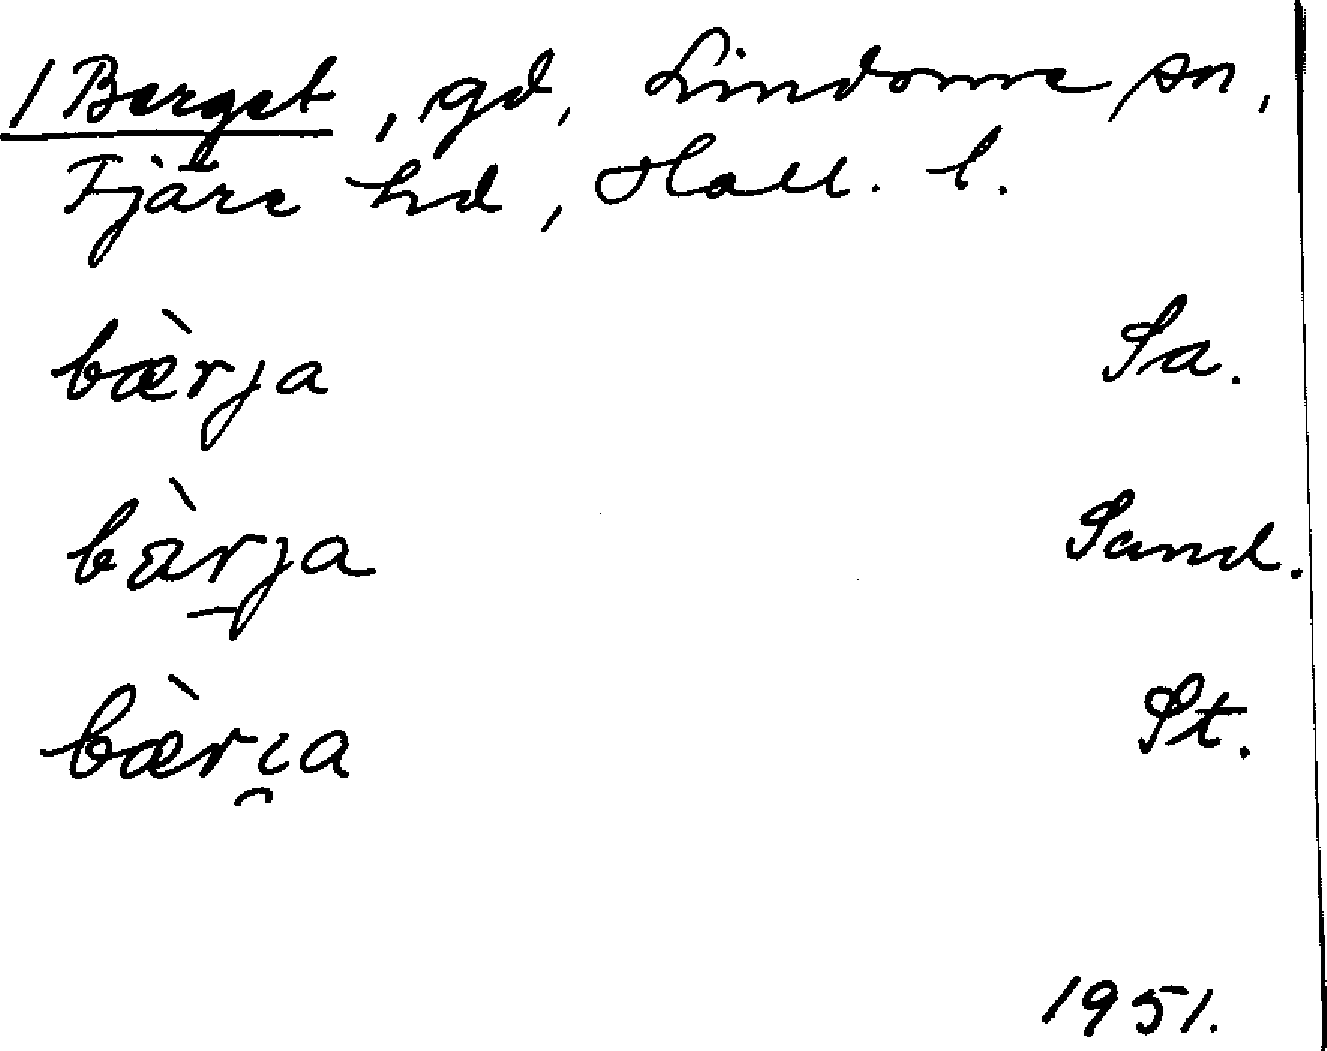 / Berget, gd, Lindome sn,
Fjäre hd, Hall. l.
bæ̀rja Sa.
bæ̀r̠ja Sand.
bæ̀rı̯a St.
1951.